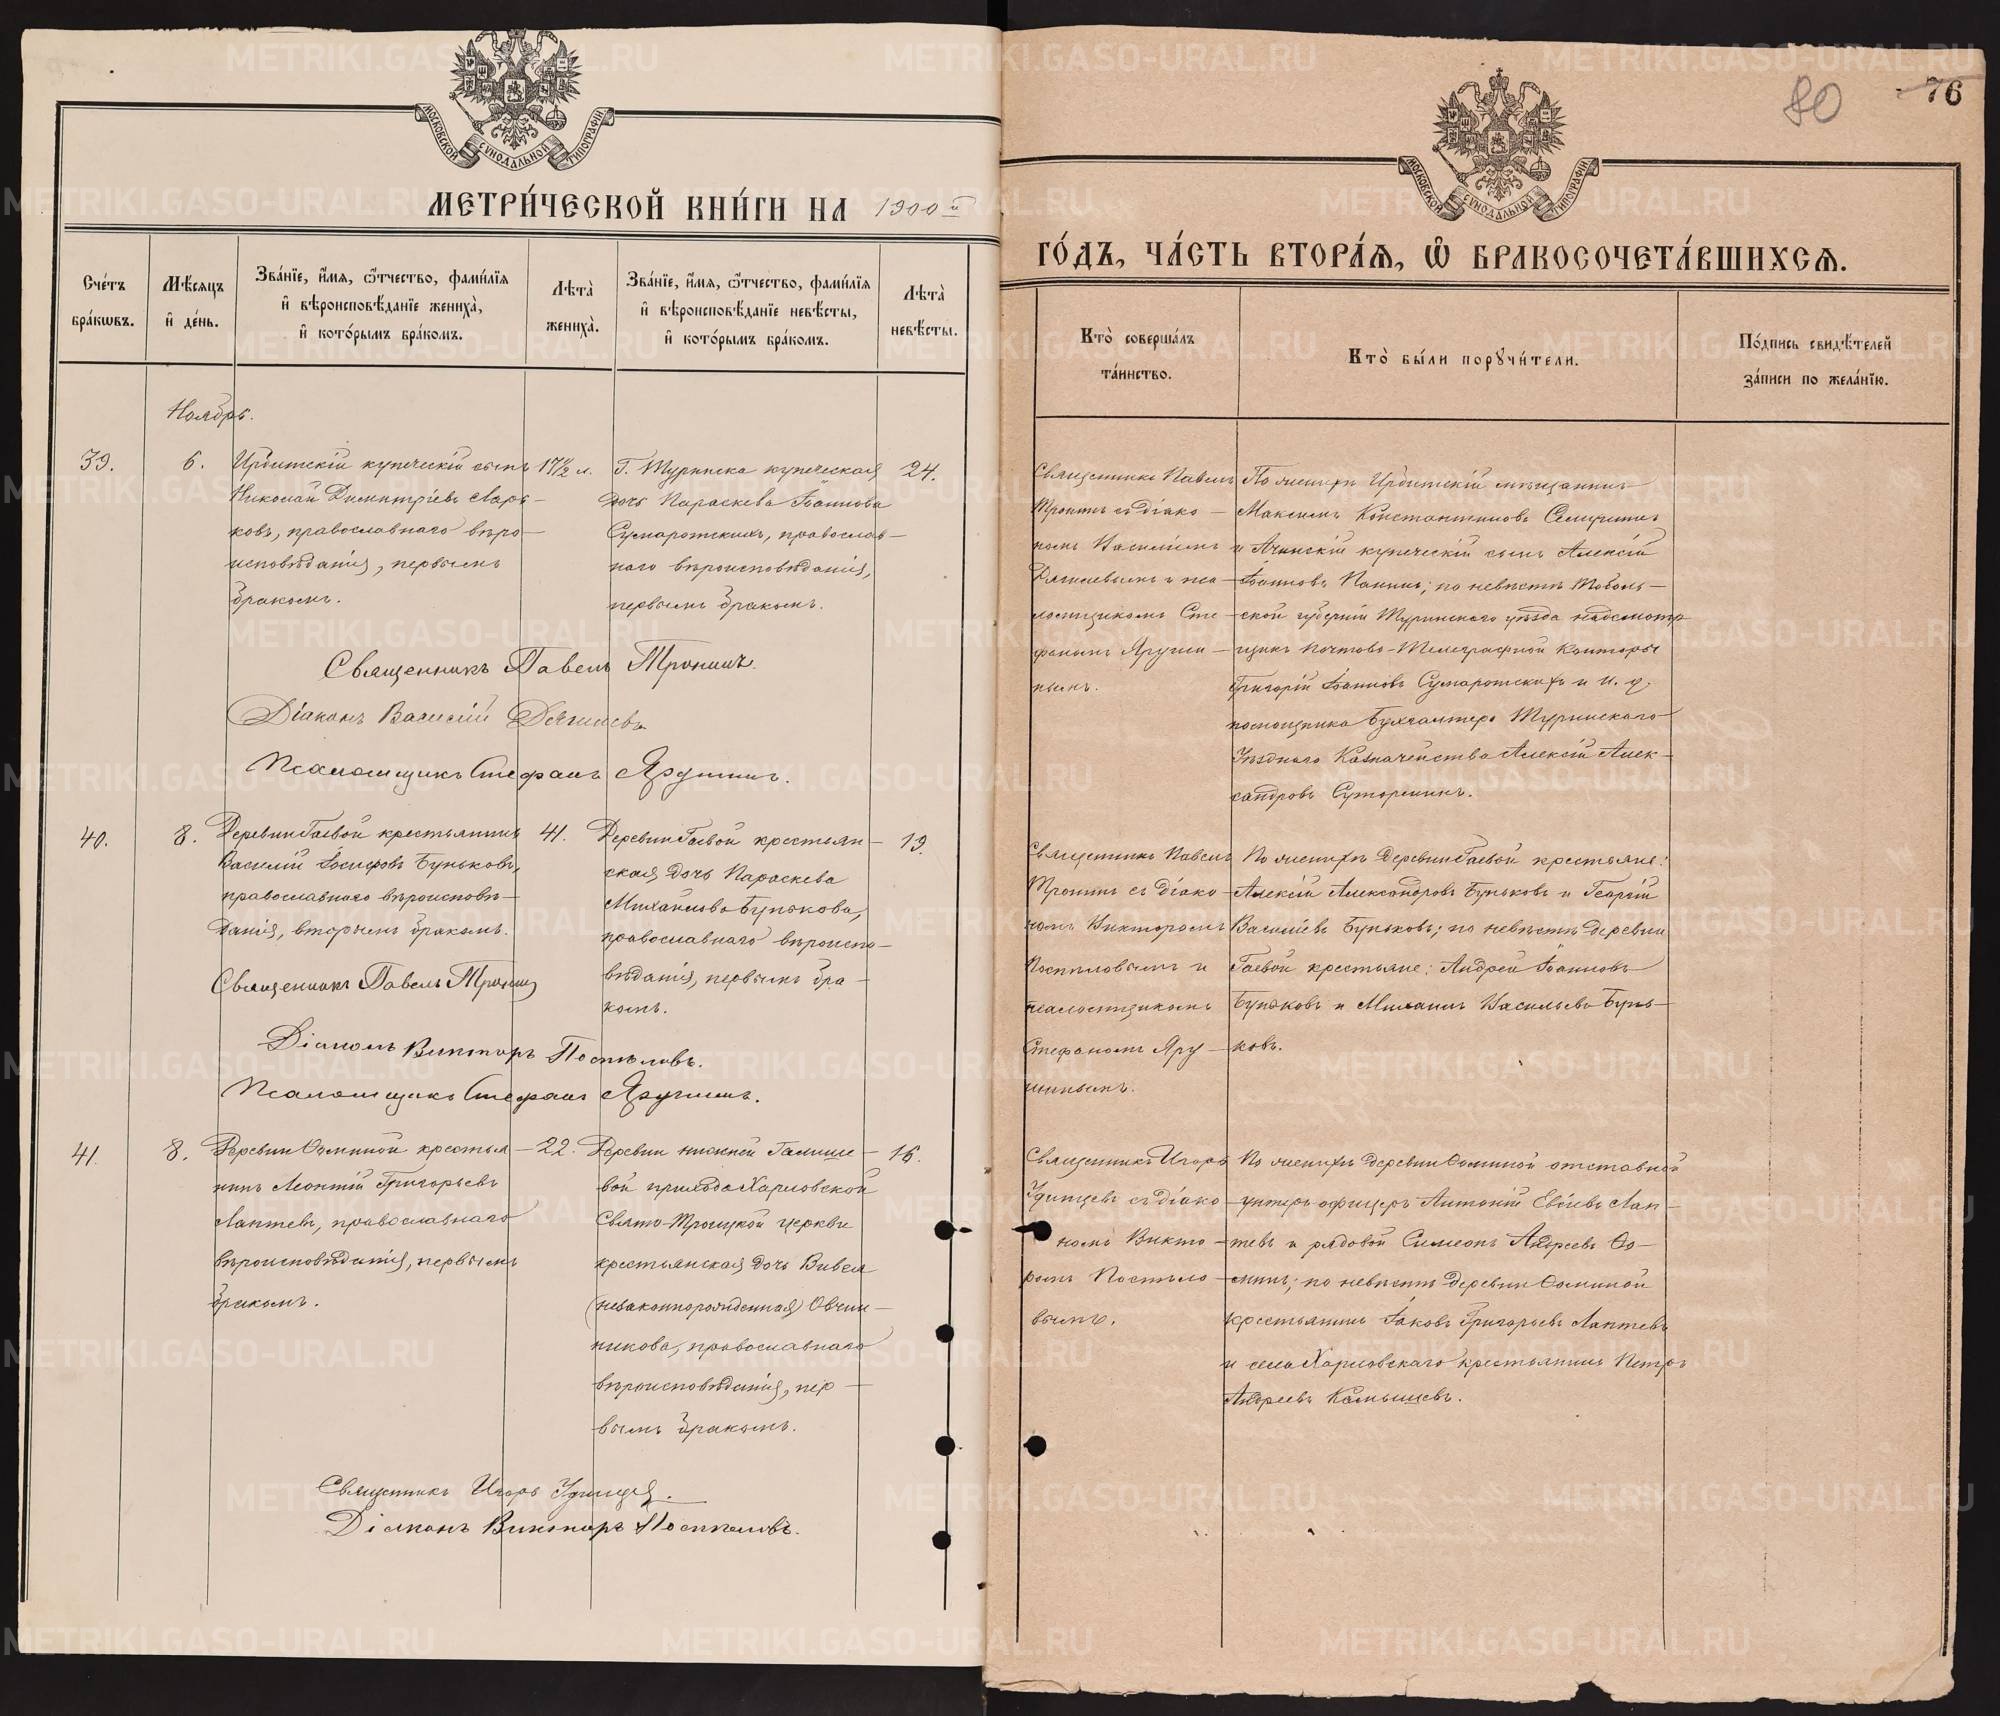 МОСКОВСКОЙ СУНОДАЛЬНОЙ ТИПОГРАФІИ
МЕТРИ́ЧЕСКОЙ КНИ́ГИ НА 1900 й
Сче́тъ бра́кωвъ.
Мѣ́сяцъ и҆ де́нь.
Зва́нїе, и҆́мя, ѻ҆́тчество, фами́лїя
и҆ вѣроисповѣ́данїе жениха̀,
и҆ кото́рымъ бра́комъ.
Лѣта̀ жениха̀.
Зва́нїе, и҆́мя, ѻ҆́тчество, фами́лїя
и҆ вѣроисповѣ́данїе невѣ́сты,
и҆ кото́рымъ бра́комъ.
Лѣта̀ невѣ́сты.
Ноябрь.
39.
6.
Ирбитскій купеческій сынъ
Николай Димитріевъ Ларь-
ковъ, православнаго вѣро-
исповѣданія, первымъ
бракомъ.
17½ л.
Г. Туринска купеческая
дочь Параскева Іоаннова
Сумаротскихъ, православ-
наго вѣроисповѣданія,
первымъ бракомъ.
24.
Священникъ Павелъ Тронинъ.
Діаконъ Василій Дягилевъ
Псаломщикъ Стефанъ Ярушинъ.
40.
8.
Деревни Гаевой крестьянинъ
Василій Іосифовъ Буньковъ,
православнаго вѣроисповѣ-
данія, вторымъ бракомъ.
41.
Деревни Гаевой крестьян-
ская дочь Параскева
Михайлова Бунькова,
православнаго вѣроиспо-
вѣданія, первымъ бра-
комъ.
19.
Священникъ Павелъ Тронинъ
Діаконъ Викторъ Поспѣловъ.
Псаломщикъ Стефанъ Ярушинъ.
41.
8.
Деревни Ѳоминой крестья-
нинъ Леонтій Григорьевъ
Лаптевъ, православнаго
вѣроисповѣданія, первымъ
бракомъ.
22.
Деревни нижней
вой прихода Харловской
Свято-Троицкой церкви
крестьянская дочь Вивея
(незаконнорожденная) Овчин-
никова, православнаго
вѣроисповѣданія, пер-
вымъ бракомъ.
16.
Священникъ Игорь Удинцев.
Діаконъ Викторъ Поспѣловъ.
80
76
МОСКОВСКОЙ СУНОДАЛЬНОЙ ТИПОГРАФІИ
ГО́ДЪ, ЧА́СТЬ ВТОРА́Я, Ѡ҆ БРАКОСОЧЕТА́ВШИХСЯ.
Кто̀ соверша́лъ
та́инство.
Кто̀ бы́ли порꙋчи́тели.
По́дпись свидѣ́телей
за́писи по жела́нїю.
Священникъ Павелъ
Тронинъ съ діако-
номъ Василіемъ
Дягилевымъ и пса-
ломщикомъ Сте-
фаномъ Яруши-
нымъ.
По женихѣ Ирбитскій мѣщанинъ
Максимъ Константиновъ
и Ачинскій купеческій сынъ Алексій
Іоанновъ Панинъ; по невѣстѣ Тоболь-
ской губерніи Туринскаго уѣзда надсмотр-
щикъ Почтово-Телеграфной Конторы
Григорій Іоанновъ Сумаротскихъ и и. д.
помощника Бухгалтера Туринскаго
Уѣзднаго Казначейства Алексій Алек-
сандровъ
Священникъ Павелъ
Тронинъ съ діако-
номъ Викторомъ
Поспѣловымъ и
псаломщикомъ
Стефаномъ Яру-
шинымъ.
По женихѣ деревни Гаевой крестьяне:
Алексій Александровъ Буньковъ и Георгій
Василіевъ Буньковъ; по невѣстѣ деревни
Гаевой крестьяне: Андрей Іоанновъ
Буньковъ и Михаилъ Васильевъ Бунь-
ковъ.
Священникъ Игорь
Удинцевъ съ діако-
номъ Викто-
ромъ Поспѣло-
вымъ.
По женихѣ деревни Ѳоминой отставной
унтеръ-офицеръ Антоній Евѳіевъ Лап-
тевъ и рядовой Симеонъ Андреевъ Ѳо-
минъ; по невѣстѣ деревни Ѳоминой
крестьянинъ Іаковъ Григорьевъ Лаптевъ
и села Харловскаго крестьянинъ Петръ
Андреевъ Камышевъ.
METRIKI.GASO-URAL.RU